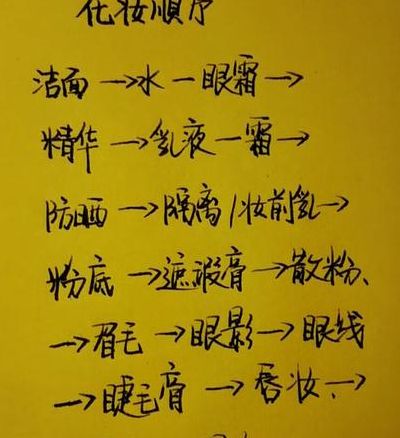 化妆顺序
洁面→水—眼霜→
精华→乳液—霜→
防晒→隔离/妆前乳→
粉底→遮瑕膏→散粉、
→眉毛→眼影→眼线
→睫毛膏→唇妆、→